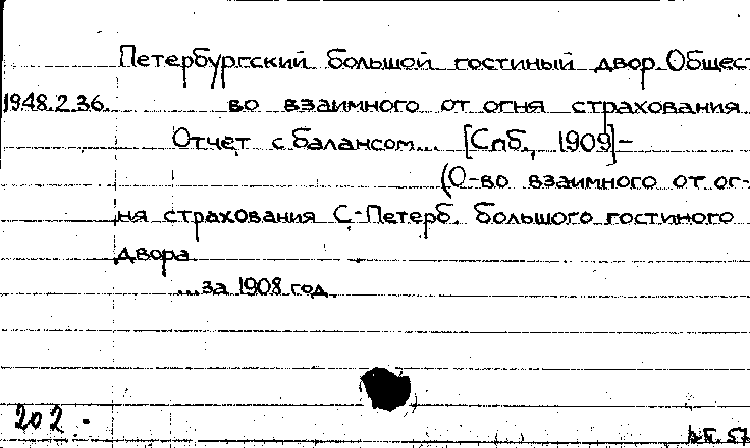 Петербургский большой гостиный двор. Общест
1948.2.36. во взаимного от огня страхования.
Отчет с балансом... [Спб., 1909]-
(О-во взаимного от ог-
ня страхования С.-Петерб. большого гостиного
двора.
...за 1908 год.
202.